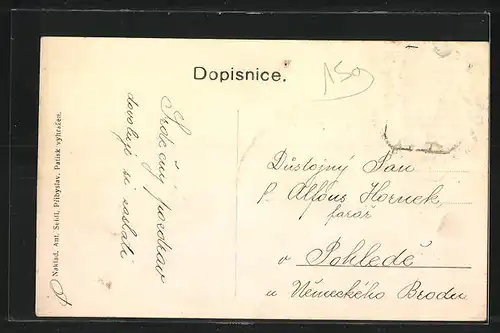 Dopisnice.
150
Srdečný pozdrav
dovoluje si zaslati
Důstojný Pan
P. Alfons Hornek
farář
v Pohledě
u Německého Brodu
Náklad. Ant. Seidl, Přibyslav. Patisk vyhražen.